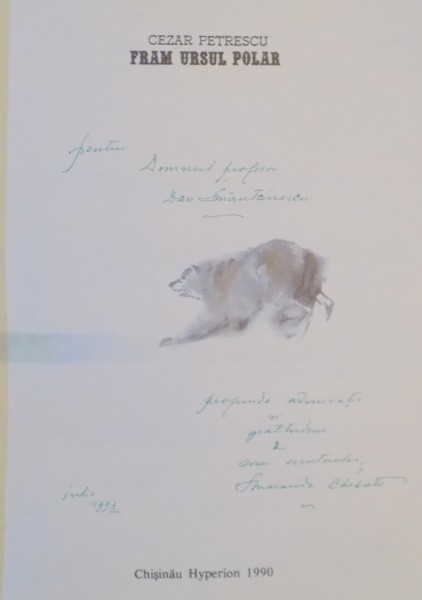 CEZAR PETRESCU
FRAM URSUL POLAR
pentru
Domnul profesor
Dan Smântânescu
profunda admirație
și
gratitudine
a
sora scriitorului,
Smaranda Chehata
iulie
1993
Chișinău Hyperion 1990